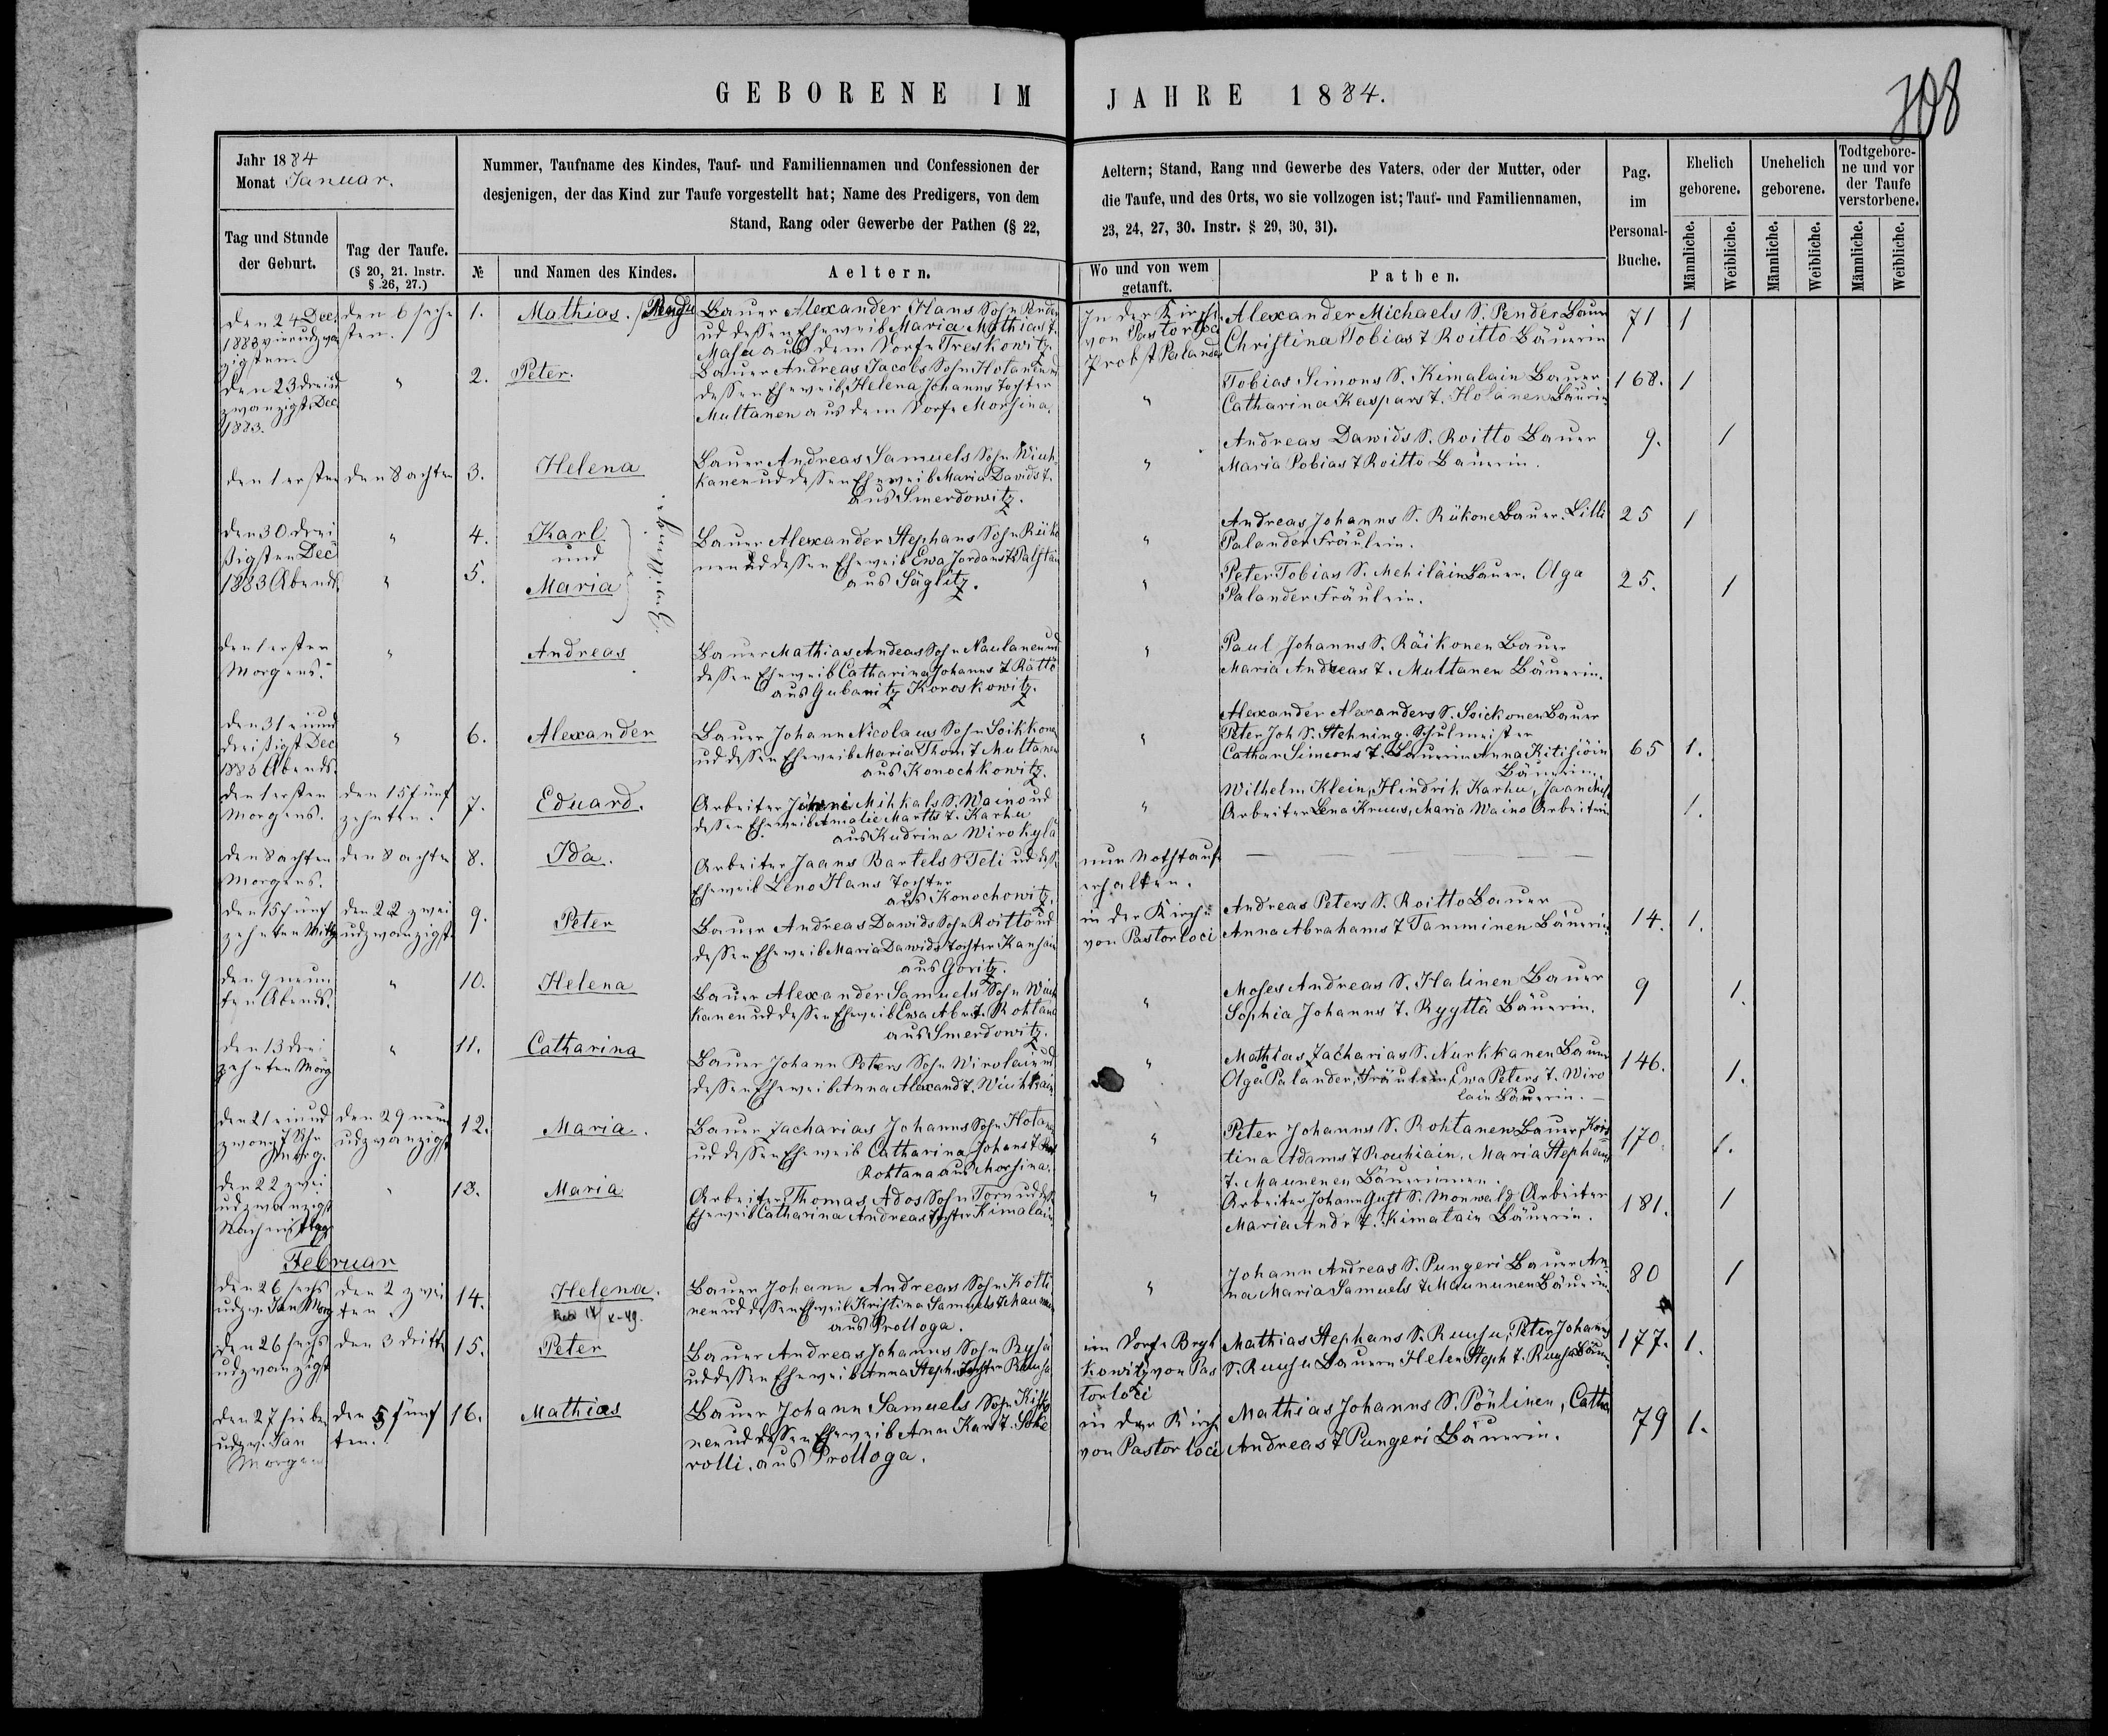 GEBORENE IM JAHRE 1884.
108
Jahr 1884
Monat Januar.
Nummer, Taufname des Kindes, Tauf- und Familiennamen und Confessionen der
desjenigen, der das Kind zur Taufe vorgestellt hat; Name des Predigers, von dem
Stand, Rang oder Gewerbe der Pathen (§ 22,
Aeltern; Stand, Rang und Gewerbe des Vaters, oder der Mutter, oder
die Taufe, und des Orts, wo sie vollzogen ist; Tauf- und Familiennamen,
23, 24, 27, 30. Instr. § 29, 30, 31).
Pag.
im
Personal-
Buche.
Ehelich
geborene.
Unehelich
geborene.
Todtgebore-
ne und vor
der Taufe
verstorbene.
Tag und Stunde
der Geburt.
Tag der Taufe.
(§ 20, 21. Instr.
§ 26, 27.)
№
und Namen des Kindes.
Aeltern.
Wo und von wem
getauft.
Pathen.
Männliche.
Weibliche.
Männliche.
Weibliche.
Männliche.
Weibliche.
den 24 Dec.
1883 vierudzwan
zigsten.
den 6 sechs
ten.
1.
Mathias.
Bauer Alexander Hans Sohn Pender
ud dessen Eheweib Maria Mathias T.
aus dem Dorfe Treskowitz.
In der Kirche
von Pastor loci
Probst Palander
Alexander Michaels S. Pender Bauer
Christina Tobias T Roitto Bäuerin
71
1
den 23 dreiud
zwanzigst. Dec
1883.
"
2.
Peter.
Bauer Andreas Jacobs Sohn Holanen ud
dessen Eheweib, Helena Johanns Tochter
Multanen aus dem Dorfe Morsina.
"
Tobias Simons S. Kimalain Bauer
Catharina Kaspars T. Holanen Bäurin
168.
1
den 1 ersten
den 8 achten
3.
Helena
Bauer Andreas Samuels Sohn Wiuh-
kanen ud dessen Eheweib Maria Davids T.
aus Smerdowitz.
"
Andreas Dawids S. Roitto Bauer
Maria Tobias T Roitto Bäuerin.
9.
1
den 30 drei
ßigsten Dec
1883 Abends.
"
4.
Karl
und
Bauer Alexander Stephans Sohn Räikö
nen ud dessen Eheweib Ewa Jordans T.
aus Säglitz.
"
Andreas Johanns S. Bauer. Lilli
Palander Fräulein.
25
1
"
5.
Maria
Zwillinge.
"
Peter Tobias S. Mehiläin Bauer. Olga
Palander Fräulein.
25.
1
den 1 ersten
Morgens.
"
Andreas
Bauer Mathias Andreas Sohn Naulanen ud
dessen Eheweib Catharina Johanns T Rättö
aus Gubanitz Koroskowitz.
"
Paul Johanns S. Räikonen Bauer
Maria Andreas T. Multanen Bäuerin.
den 31 einund
dreißigst Dec
1883 Abends.
"
6.
Alexander
Bauer Johann Nicolaus Sohn Soikkonen
ud dessen Eheweib Maria Thom. T Multanen
aus Konochkowitz.
"
Alexander Alexanders S. Soickonen Bauer
Peter Joh S. Stehning. Schulmeister
Cathar Simeons T. Bäuerin Anna
Bäuerin.
65
1.
den 1 ersten
Morgens.
den 15 fünf
zehnten.
7.
Eduard.
Arbeiter Mihkals S. Waino ud
dessen Eheweib Amalie Marths T. Karhu
aus Kudrina Wirokylä
"
Wilhelm Klein, Hindrik Karhu, Jaan
Arbeiter Lena Kruus, Maria Waino Arbeiterin
1.
den 8 achten
Morgens.
den 8 achten
8.
Ida.
Arbeiter Jaans Bartels S Teli ud dess.
Eheweib Leno Hans Tochter
aus Konochowitz.
nur Nothtaufe
erhalten.
den 15 fünf
zehnten Mittg
den 22 zwei
udzwanzigst.
9.
Peter
Bauer Andreas Dawids Sohn Roitto ud
dessen Eheweib Maria Dawids Tochter
aus Goritz.
in der Kirche
von Pastor loci
Andreas Peters S. Roitto Bauer
Anna Abrahams T Tamminen Bäuerin
14.
1.
den 9 neun
ten Abends.
"
10.
Helena
Bauer Alexander Samuels Sohn Wiuh
kanen ud dessen Eheweib Ewa Abr. T. Rohtan
aus Smerdowitz.
"
Moses Andreas S. Halinen Bauer
Sophia Johanns T. Ryyttä Bäuerin.
9
1.
den 13 drei
zehnten Morg
"
11.
Catharina
Bauer Johann Peters Sohn Wirolain ud
dessen Eheweib Anna Alexand T.
"
Mathias Zacharias S. Nurkkanen Bauer
Olga Palander, Fräulein, Ewa Peters T. Wiro
lain Bäuerin.
146.
1.
den 21 einud
zwanz 7 Uhr
Morg.
den 29 neun
udzwanzigst
12.
Maria.
Bauer Zacharias Johanns Sohn Holan
ud dessen Eheweib Catharina Johans T
Rohtana aus Morsina.
"
Peter Johanns S. Rohtanen Bauer,
tina Adams T Rouhiain, Maria Stephans
T. Maunenen Bäuerinnen.
170.
1.
den 22 zwei
udzwanzigst
Nachmittags
"
13.
Maria
Arbeiter Thomas Ados Sohn Torn ud dess
Eheweib Catharina Andreas Tochter Kimalain
"
Arbeiter Johann Gust S. Monwald Arbeiter
Maria Andr T. Kimalain Bäuerin.
181.
1
Februar
den 26 sechs
udzw. Jan Morg
den 2 zwei
ten.
14.
Helena.
Bauer Johann Andreas Sohn Kotti
nen ud dessen Eheweib Kristina Samuels T
aus Prolloga.
"
Johann Andreas S. Pungeri Bauer An
na Maria Samuels T Maununen Bäuerin
80
1
den 26 sechs
udzwanzigst
den 3 dritten
15.
Peter
Bauer Andreas Johanns Sohn
ud dessen Eheweib Anna Steph. Tochter
im Dorfe
kowitz von Pas
tor loci
Mathias Stephans S. Ruusu, Peter Johanns
S. Ruusu Bauern Helen Steph T. Ruusu
177.
1.
den 27 sieben
udzw. Jan
Morgen
den 5 fünf
ten.
16.
Mathias
Bauer Johann Samuels Sohn
nen ud dessen Eheweib Ann Karl T. Soke
rolli, aus Prolloga.
in der Kirche
von Pastor loci
Mathias Johanns S. Pönlinen, Catha
Andreas T Pungeri Bäuerin.
79
1.